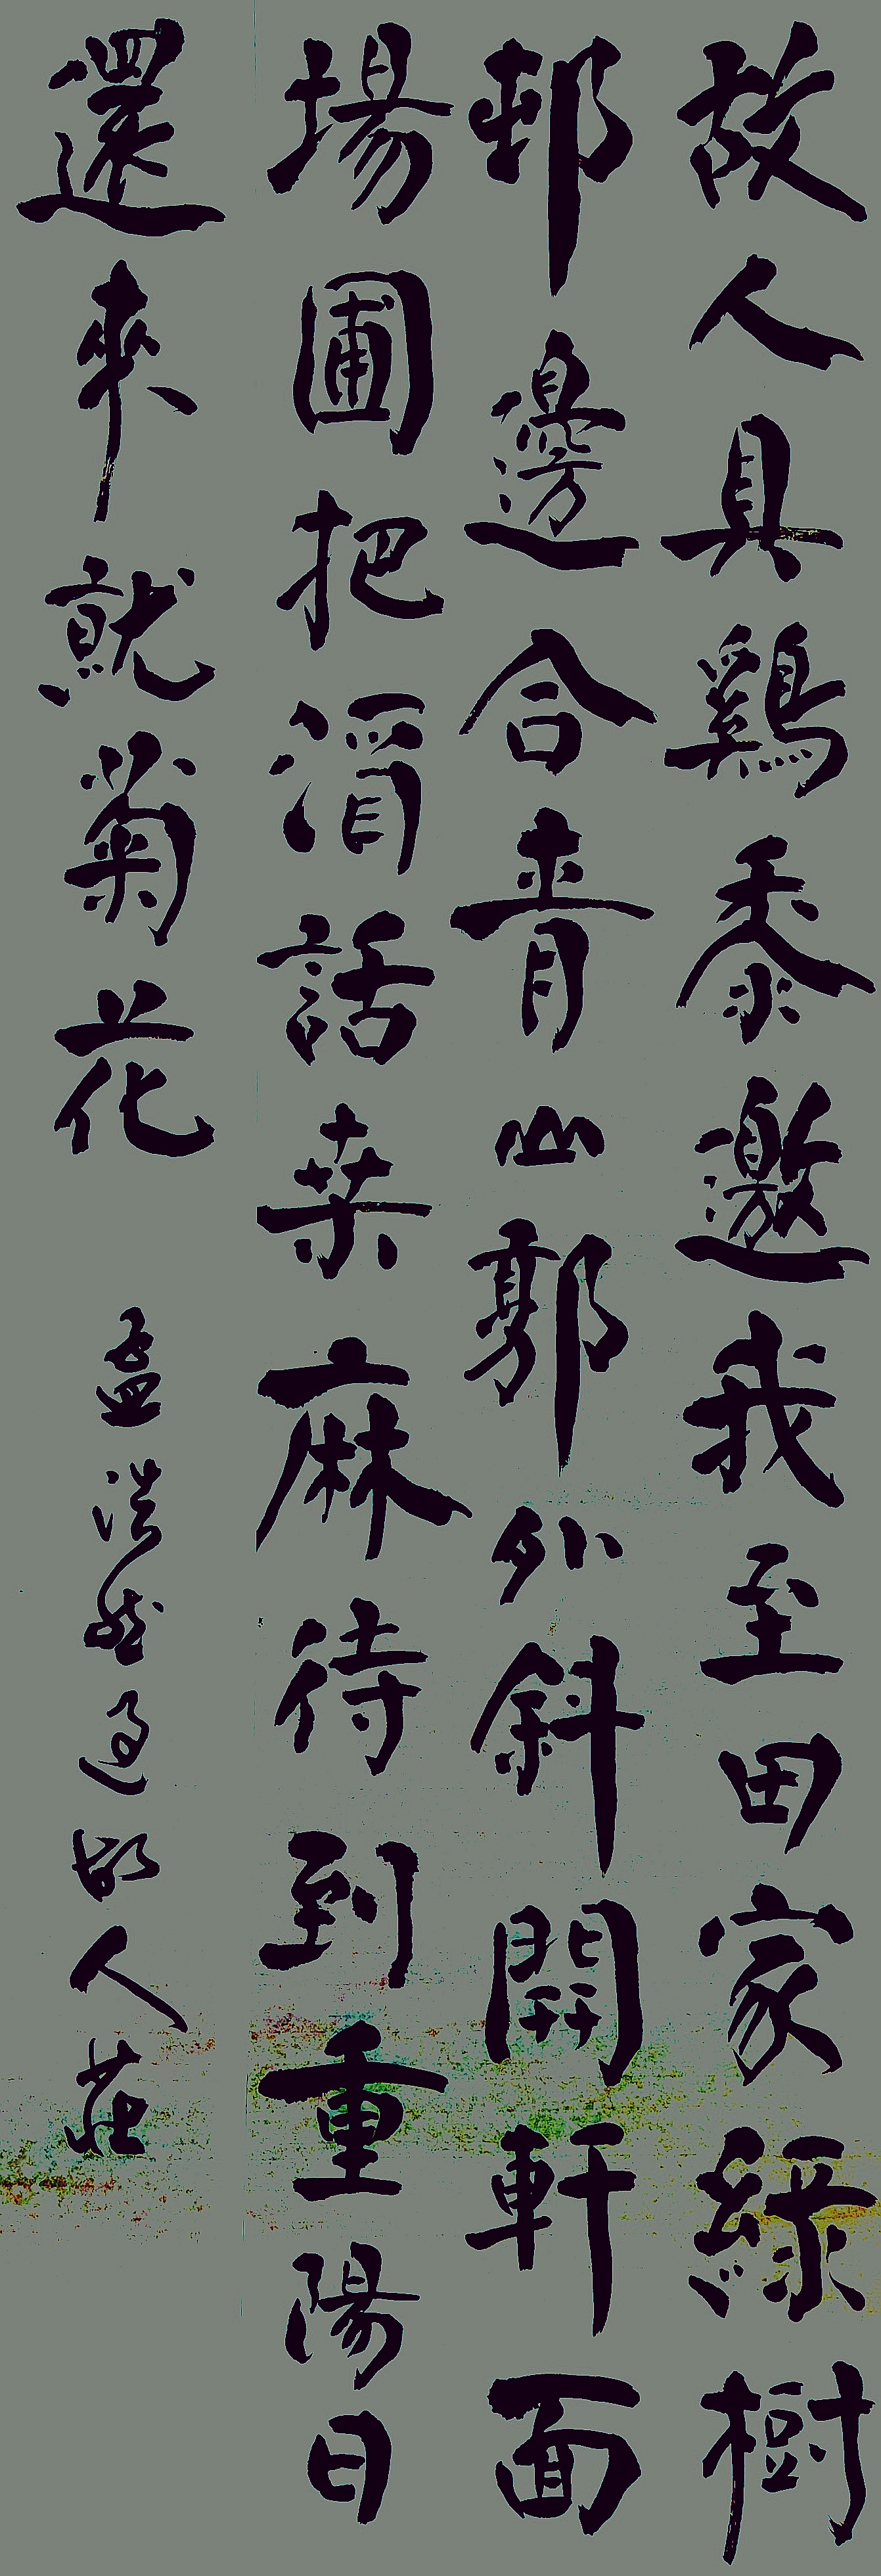 故人具鷄黍邀我至田家綠樹
邨邊合青山郭外斜開軒面
場圃把酒話桒麻待到重陽日
還來就菊花 孟浩然過故人莊